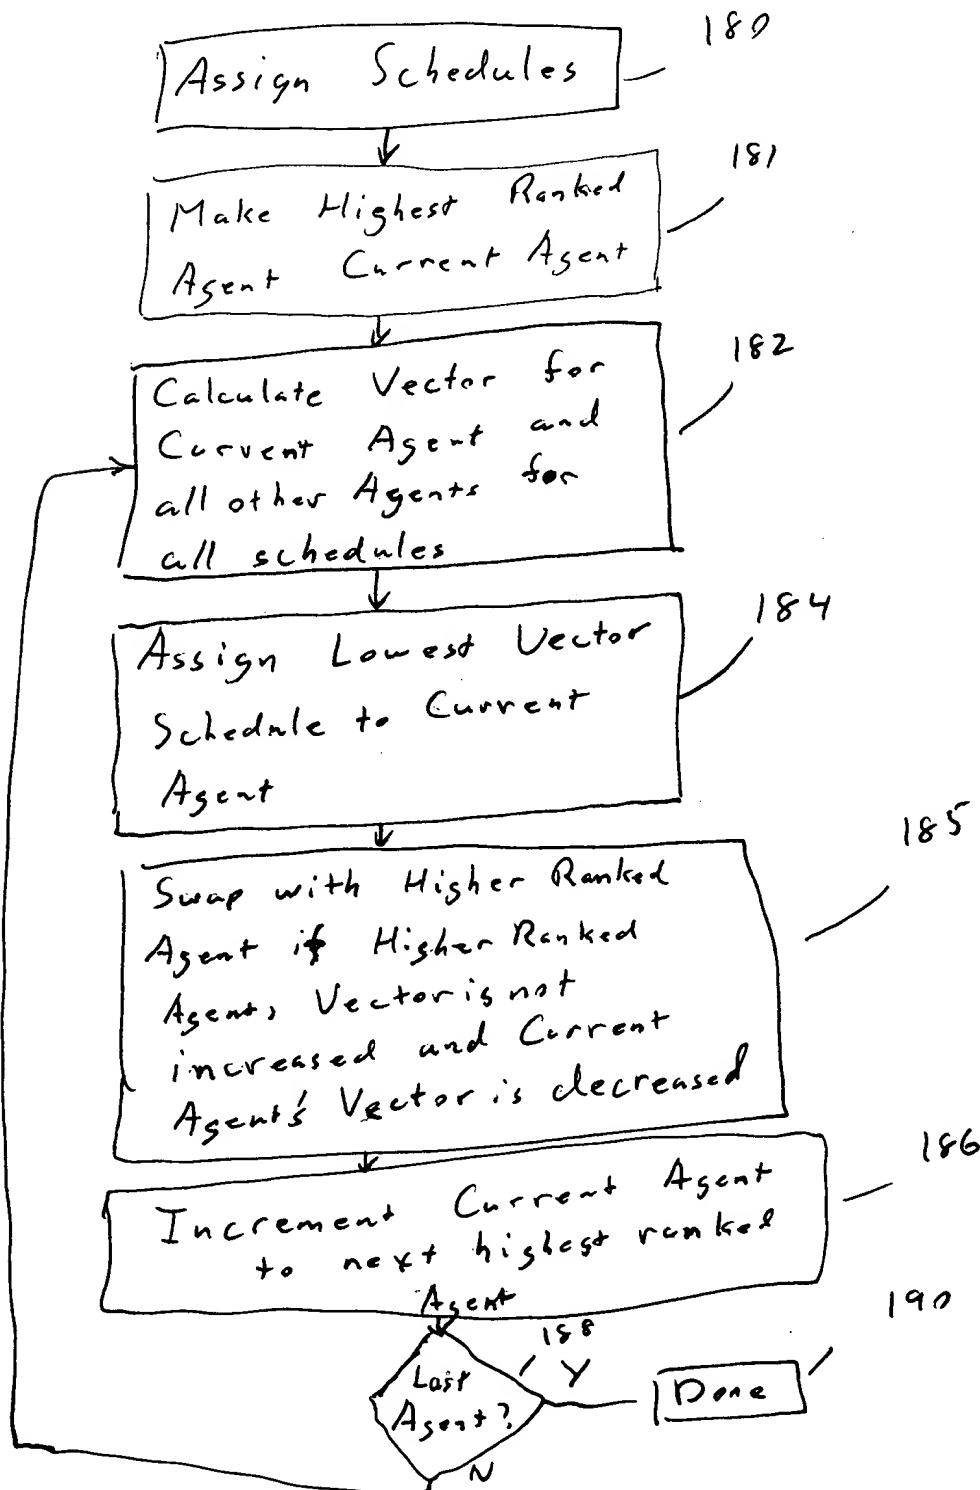 180
Assign Schedules
181
Make Highest Ranked
Agent Current Agent
182
Calculate Vector for
Current Agent and
all other Agents for
all schedules
184
Assign Lowest Vector
Schedule to Current
Agent
185
Swap with Higher Ranked
Agent if Higher Ranked
Agent, Vector is not
increased and Current
Agent's Vector is decreased
186
Increment Current Agent
to next highest ranked
Agent
190
188
Y
Last
Agent?
Done
N